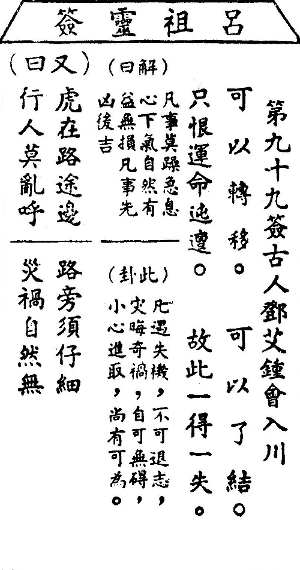 呂祖靈簽
第九十九簽古人鄧艾鍾會入川
可以轉移。可以了結。
只恨運命迍邅。故此一得一失。
(解曰)
凡事莫躁急息
心下氣自然有
益無損凡事先
凶後吉
(此卦)
凡遇失機,不可退志,
灾晦奇禍,自可無碍,
小心進取,尚有可為。
(又曰)
虎在路途邊
行人莫亂呼
路旁須仔細
災禍自然無